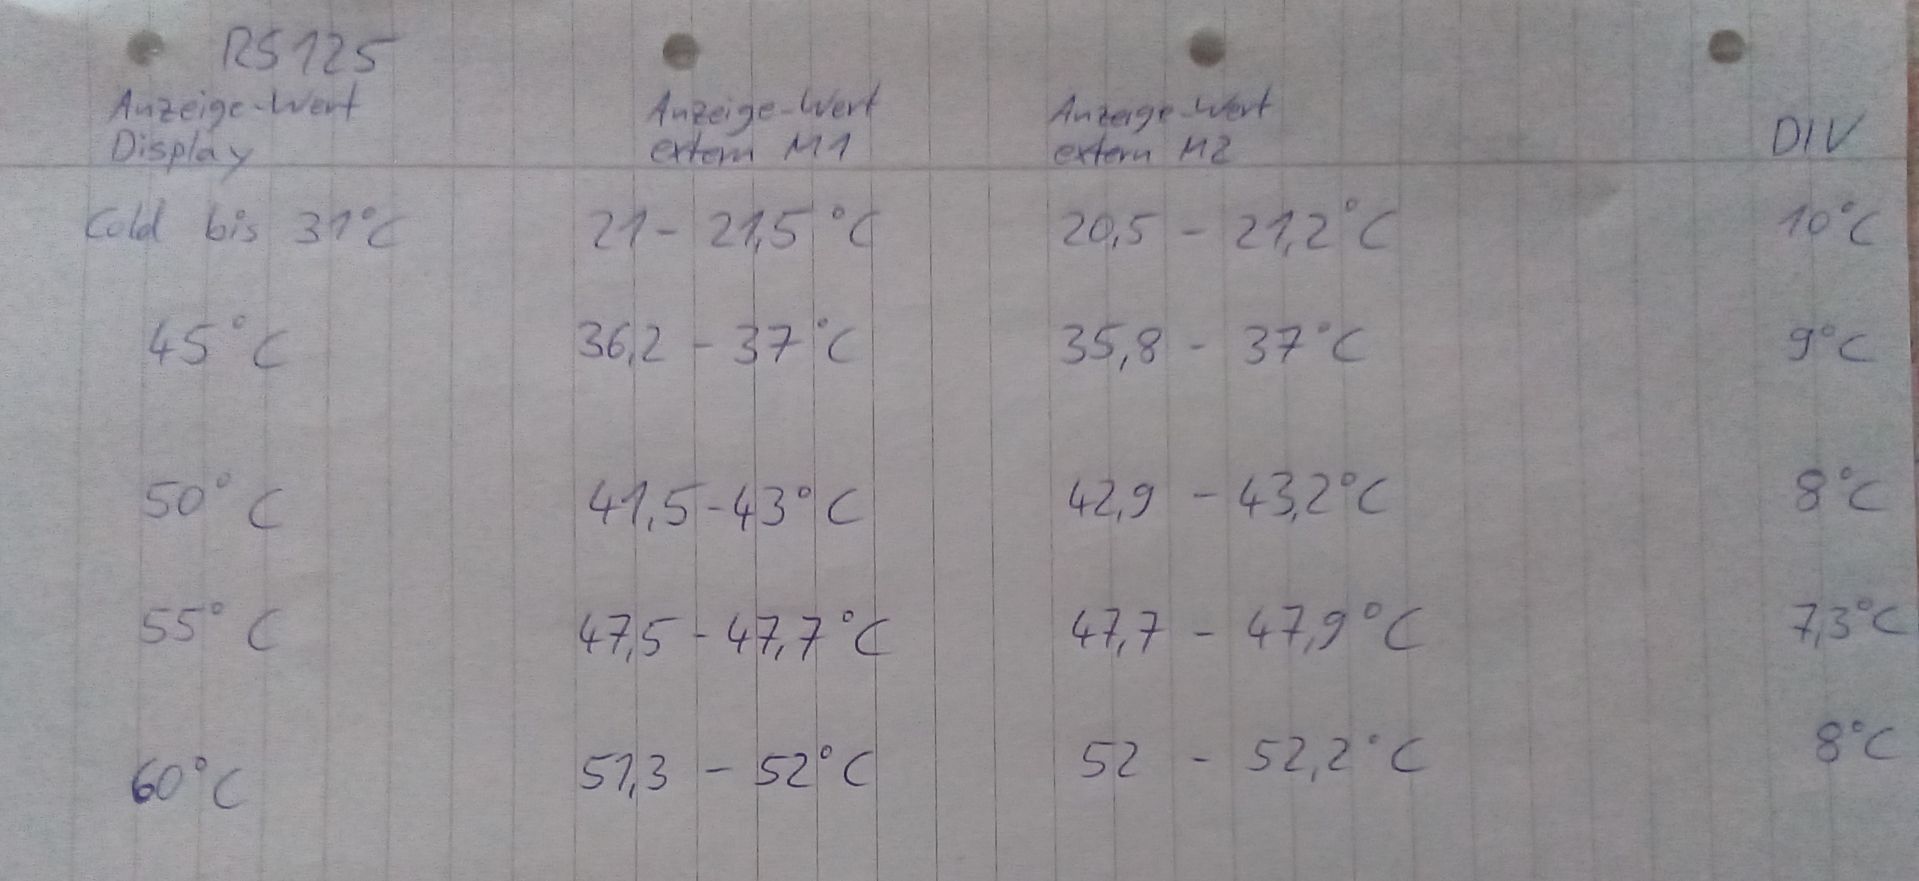 RS125
Anzeige-Wert Anzeige-Wert Anzeige-Wert
Display extern M1 extern M2 DIV
Cold bis 31°C 21 - 21,5 °C 20,5 - 21,2°C 10°C
45°C 36,2 - 37°C 35,8 - 37°C 9°C
50°C 41,5 - 43°C 42,9 - 43,2°C 8°C
55°C 47,5 - 47,7°C 47,7 - 47,9°C 7,3°C
60°C 51,3 - 52°C 52 - 52,2°C 8°C